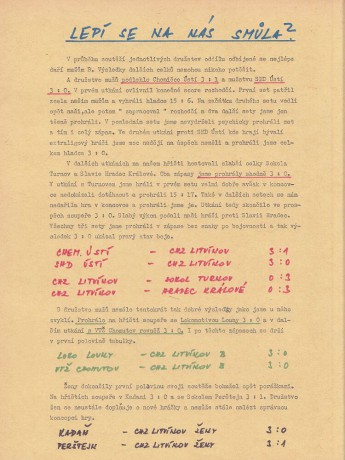 LEPÍ SE NA NÁS SMŮLA?
V průběhu soutěží jednotlivých družstev odžilo odbíjené se nejlépe
daří mužům B. Výsledky dalších celků nemohou nikoho potěšit.
A družstvo mužů podlehlo Chemičce Ústí 3 : 1 a mužstvu SHD Ústí
3 : 0. V prvém utkání ovlivnil konečné skore rozhodčí. První set patřil
zcela našim mužům a vyhráli hladce 15 : 6. Na začátku druhého setu vedli
opět naši, ale potom " zapracoval " rozhodčí a dva další sety jsme jen
těsně prohráli. V posledním setu jsme nevydrželi psychicky prohráli set
a tím i celý zápas. Ve druhém utkání proti SHD Ústí kde hrají bývalí
extraligoví hráči jsme moc naději na úspěch neměli a prohráli jsme cel-
kem hladce 3 : 0.
V dalších utkáních na našem hřišti hostovali slabší celky Sokola
Turnov a Slavie Hradec Králové. Oba zápasy jsme prohráli shodně 3 : 0.
V utkání s Turnovem jsme hráli v prvém setu velmi dobře avšak v koncov-
ce nedokázali zvítězit a prohráli 15 : 17. Také v dalších setech se nám
nedařila hra v koncovce a prohráli jsme je. Utkání tedy skončilo ve pros-
pěch soupeře 3 : 0. Slabý výkon podali naši hráči proti Slavii Hradec.
Všechny tři sety jsme prohráli a zápas bez snahy po bojovnosti a tak vý-
sledek 3 : 0 ukázal pravý stav hejn.
CHEM. ÚSTÍ - CHZ LITVÍNOV 3:1
SHD ÚSTÍ - CHZ LITVÍNOV 3:0
CHZ LITVÍNOV - SOKOL TURNOV 0:3
CHZ LITVÍNOV - HRADEC KRÁLOVÉ 0:3
B družstvo mužů nemělo tentokrát tak dobré výsledky jako jsme u něho
zvyklí. Prohrálo na hřišti soupeře se Lokomotivou Louky 3 : 0 a v dal-
ším utkání s VTŽ Chomutov rovněž 3 : 0. I po těchto zápasech se drží
v první polovině tabulky.
LOKO LOUKY - CHZ LITVÍNOV B 3:0
VTŽ CHOMUTOV - CHZ LITVÍNOV B 3:0
Ženy dokončily první polovinu svojí soutěže bohužel opět porážkami.
Na hřištích soupeřů v Kadani 3 : 0 a se Sokolem Perštejn 3 : 1. Družstvo
se neustále doplňuje o nové hráčky a nemůže stále nalézt správnou
koncepci hry.
KADAŇ - CHZ LITVÍNOV ŽENY 3:0
PERŠTEJN - CHZ LITVÍNOV ŽENY 3:1